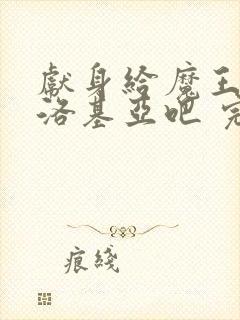 獻身給魔王
洛基亞吧 完
痕綫